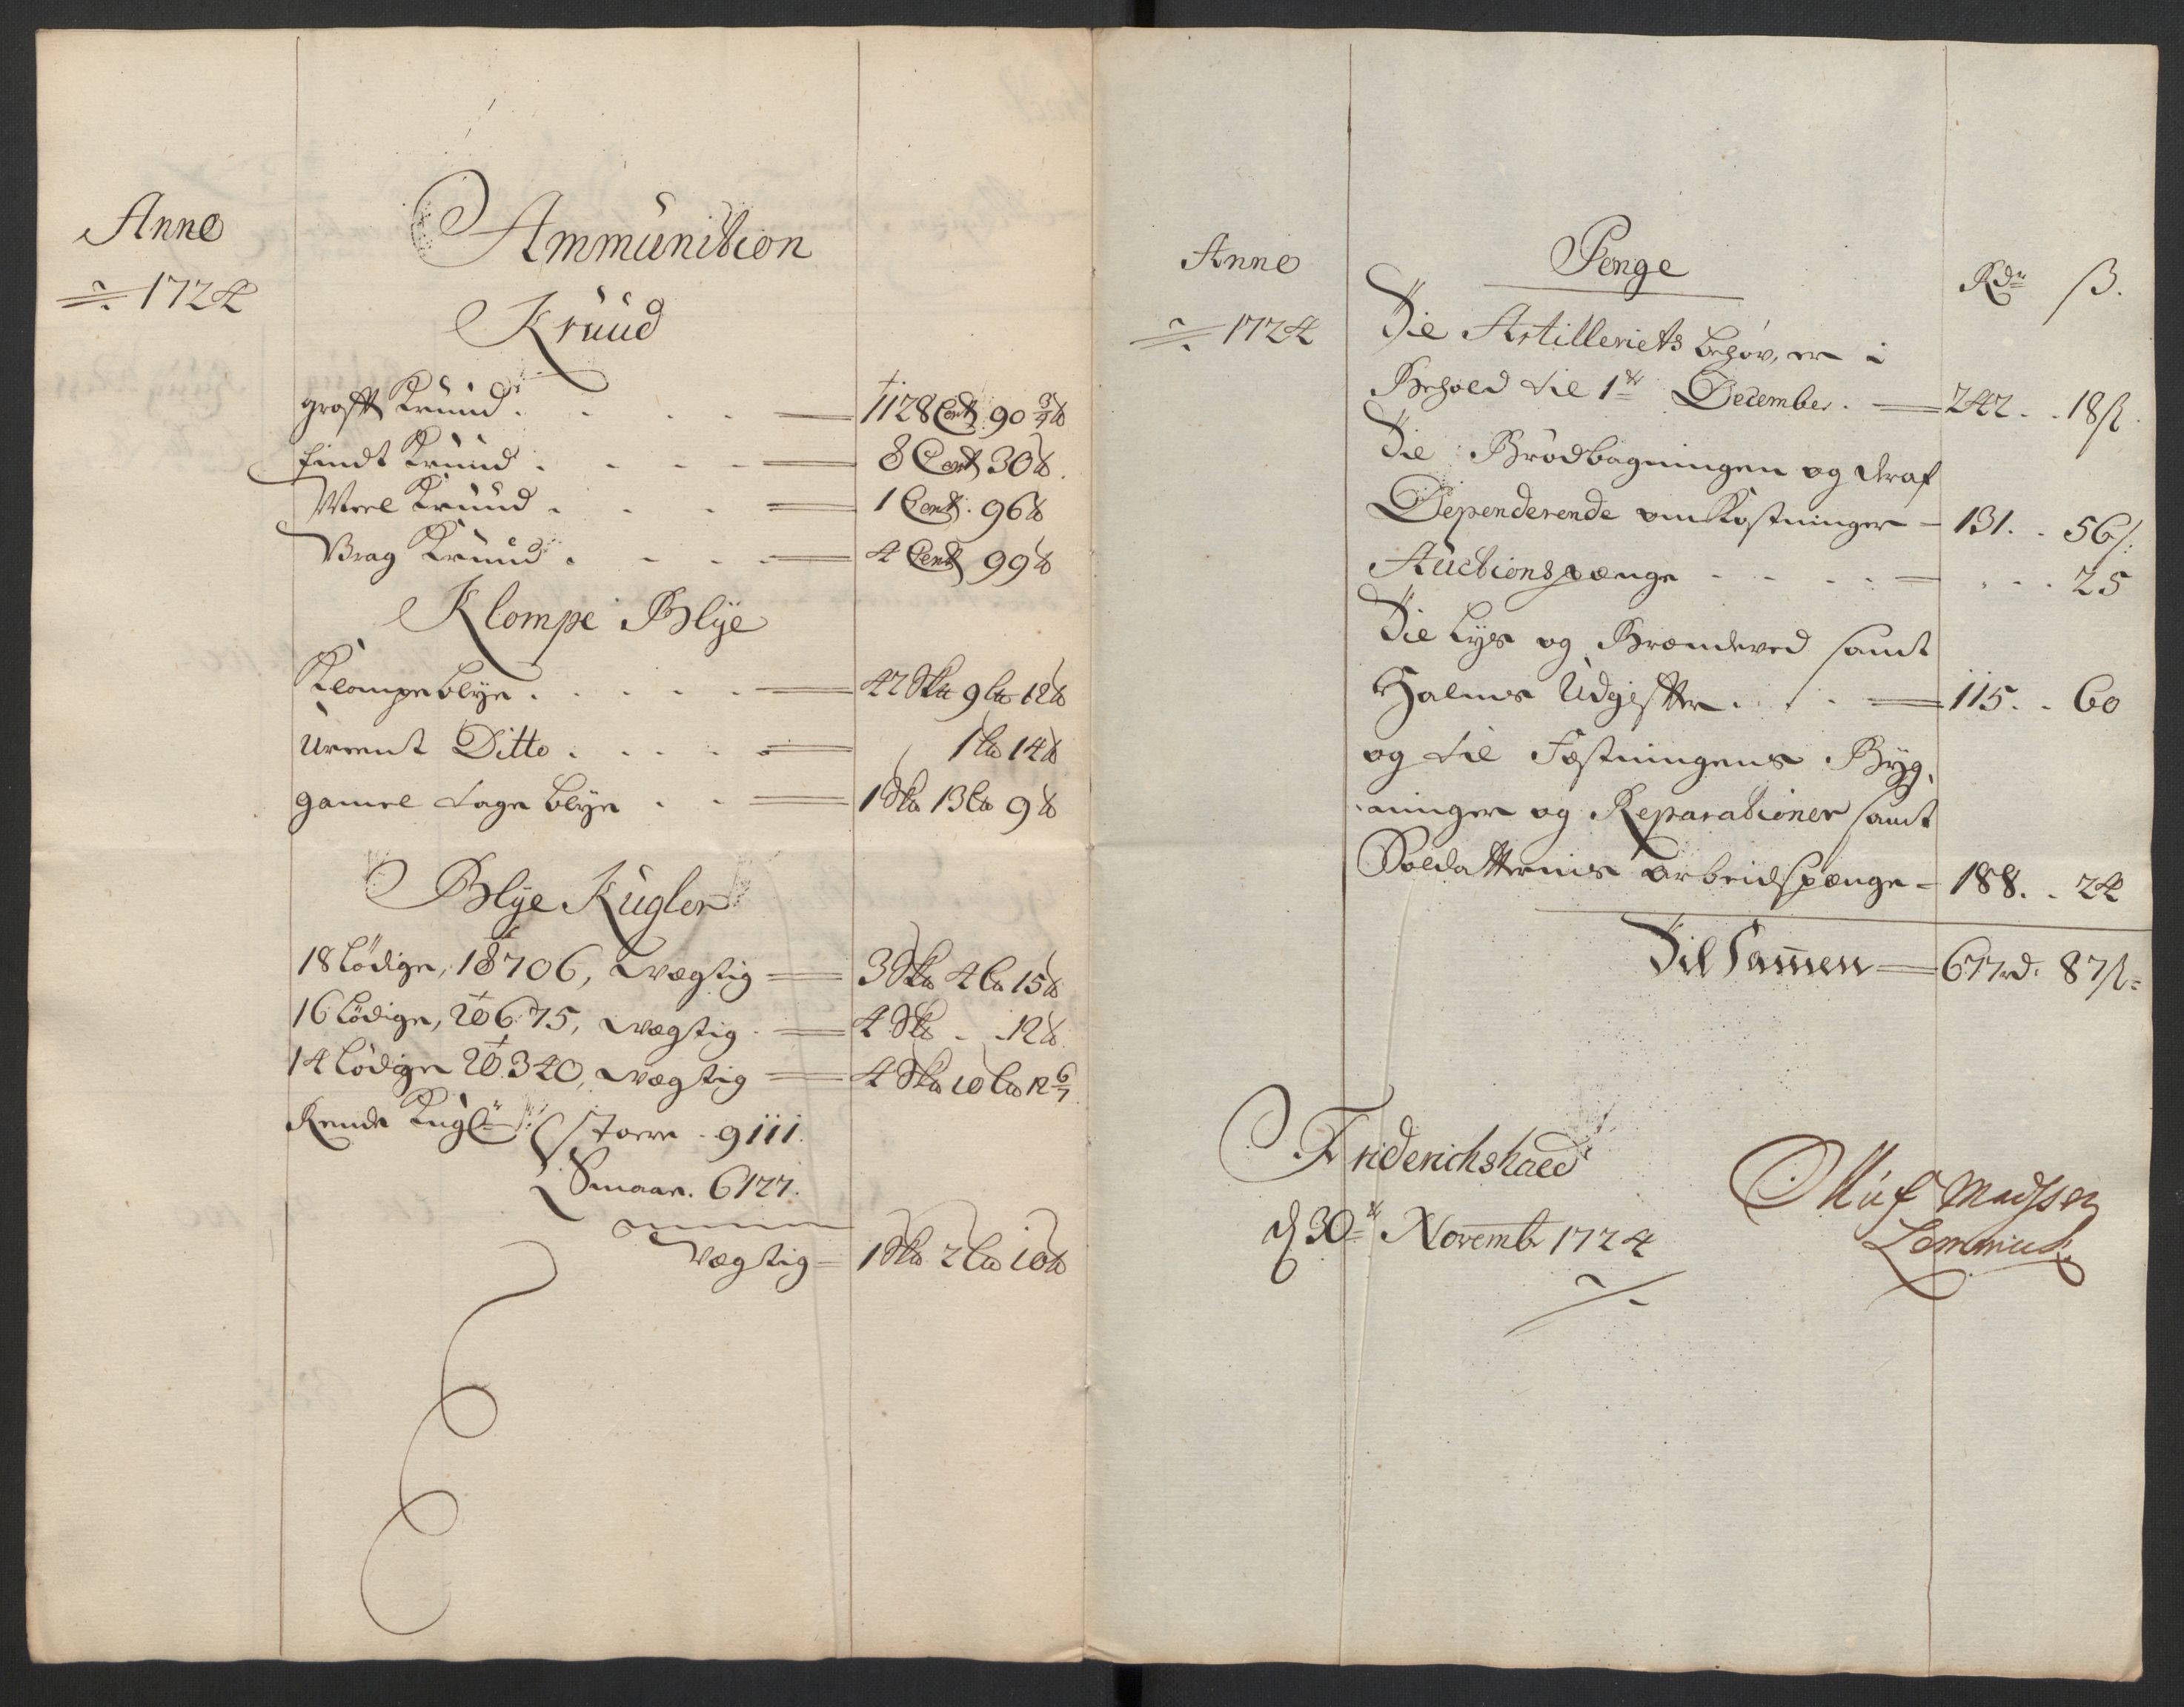 Anno
1724
Ammunition
Kruud
groft Kruud. 1128 Cent 90 3/4 ℔
findt Kruud. 8 Cent 30 ℔.
Meel Kruud. 1 Cent. 96 ℔
Vrag Kruud. 4 Cent 99 ℔
Klompe Blye
Klompe blye. 42 Sk℔ 9 L℔ 12 ℔
Ureent Ditto. 1 L℔ 14 ℔
gamel tage blye 1 Sk℔ 13 L℔ 9 ℔
Blye Kugler
18 lødige, 18706, vægtig 3 Sk℔ 4 L℔ 15 ℔
16 lødige, 20675, vægtig 4 Sk℔ . . 12 ℔
14 lødige 20340, vægtig 4 Sk℔ 10 L℔ 12 6/7
Rende Kugl: Stoere. 9111.
Smaae. 6177.
vægtig 1 Sk℔ 2 L℔ 10 ℔
Anno
1724
Penge
Rdr ß.
Til Artilleriets behøv, er i
Behold til 1te December. 242. . 18 ß.
Til Brødbagningen og deraf
Dependerende omkostninger 131. . 56 ß
Auctionspenge . . . 25
Til Lys og Brændeved samt
Halmes Udgifter. 115. . 60
og til Fæstningens Byg-
ninger og Reparationer samt
Soldatternis arbeidspenge 188. . 24
Til Sammen 677 rd: 87 ß
Friderichshald
d 30te Novembr 1724
Oluf Madssen